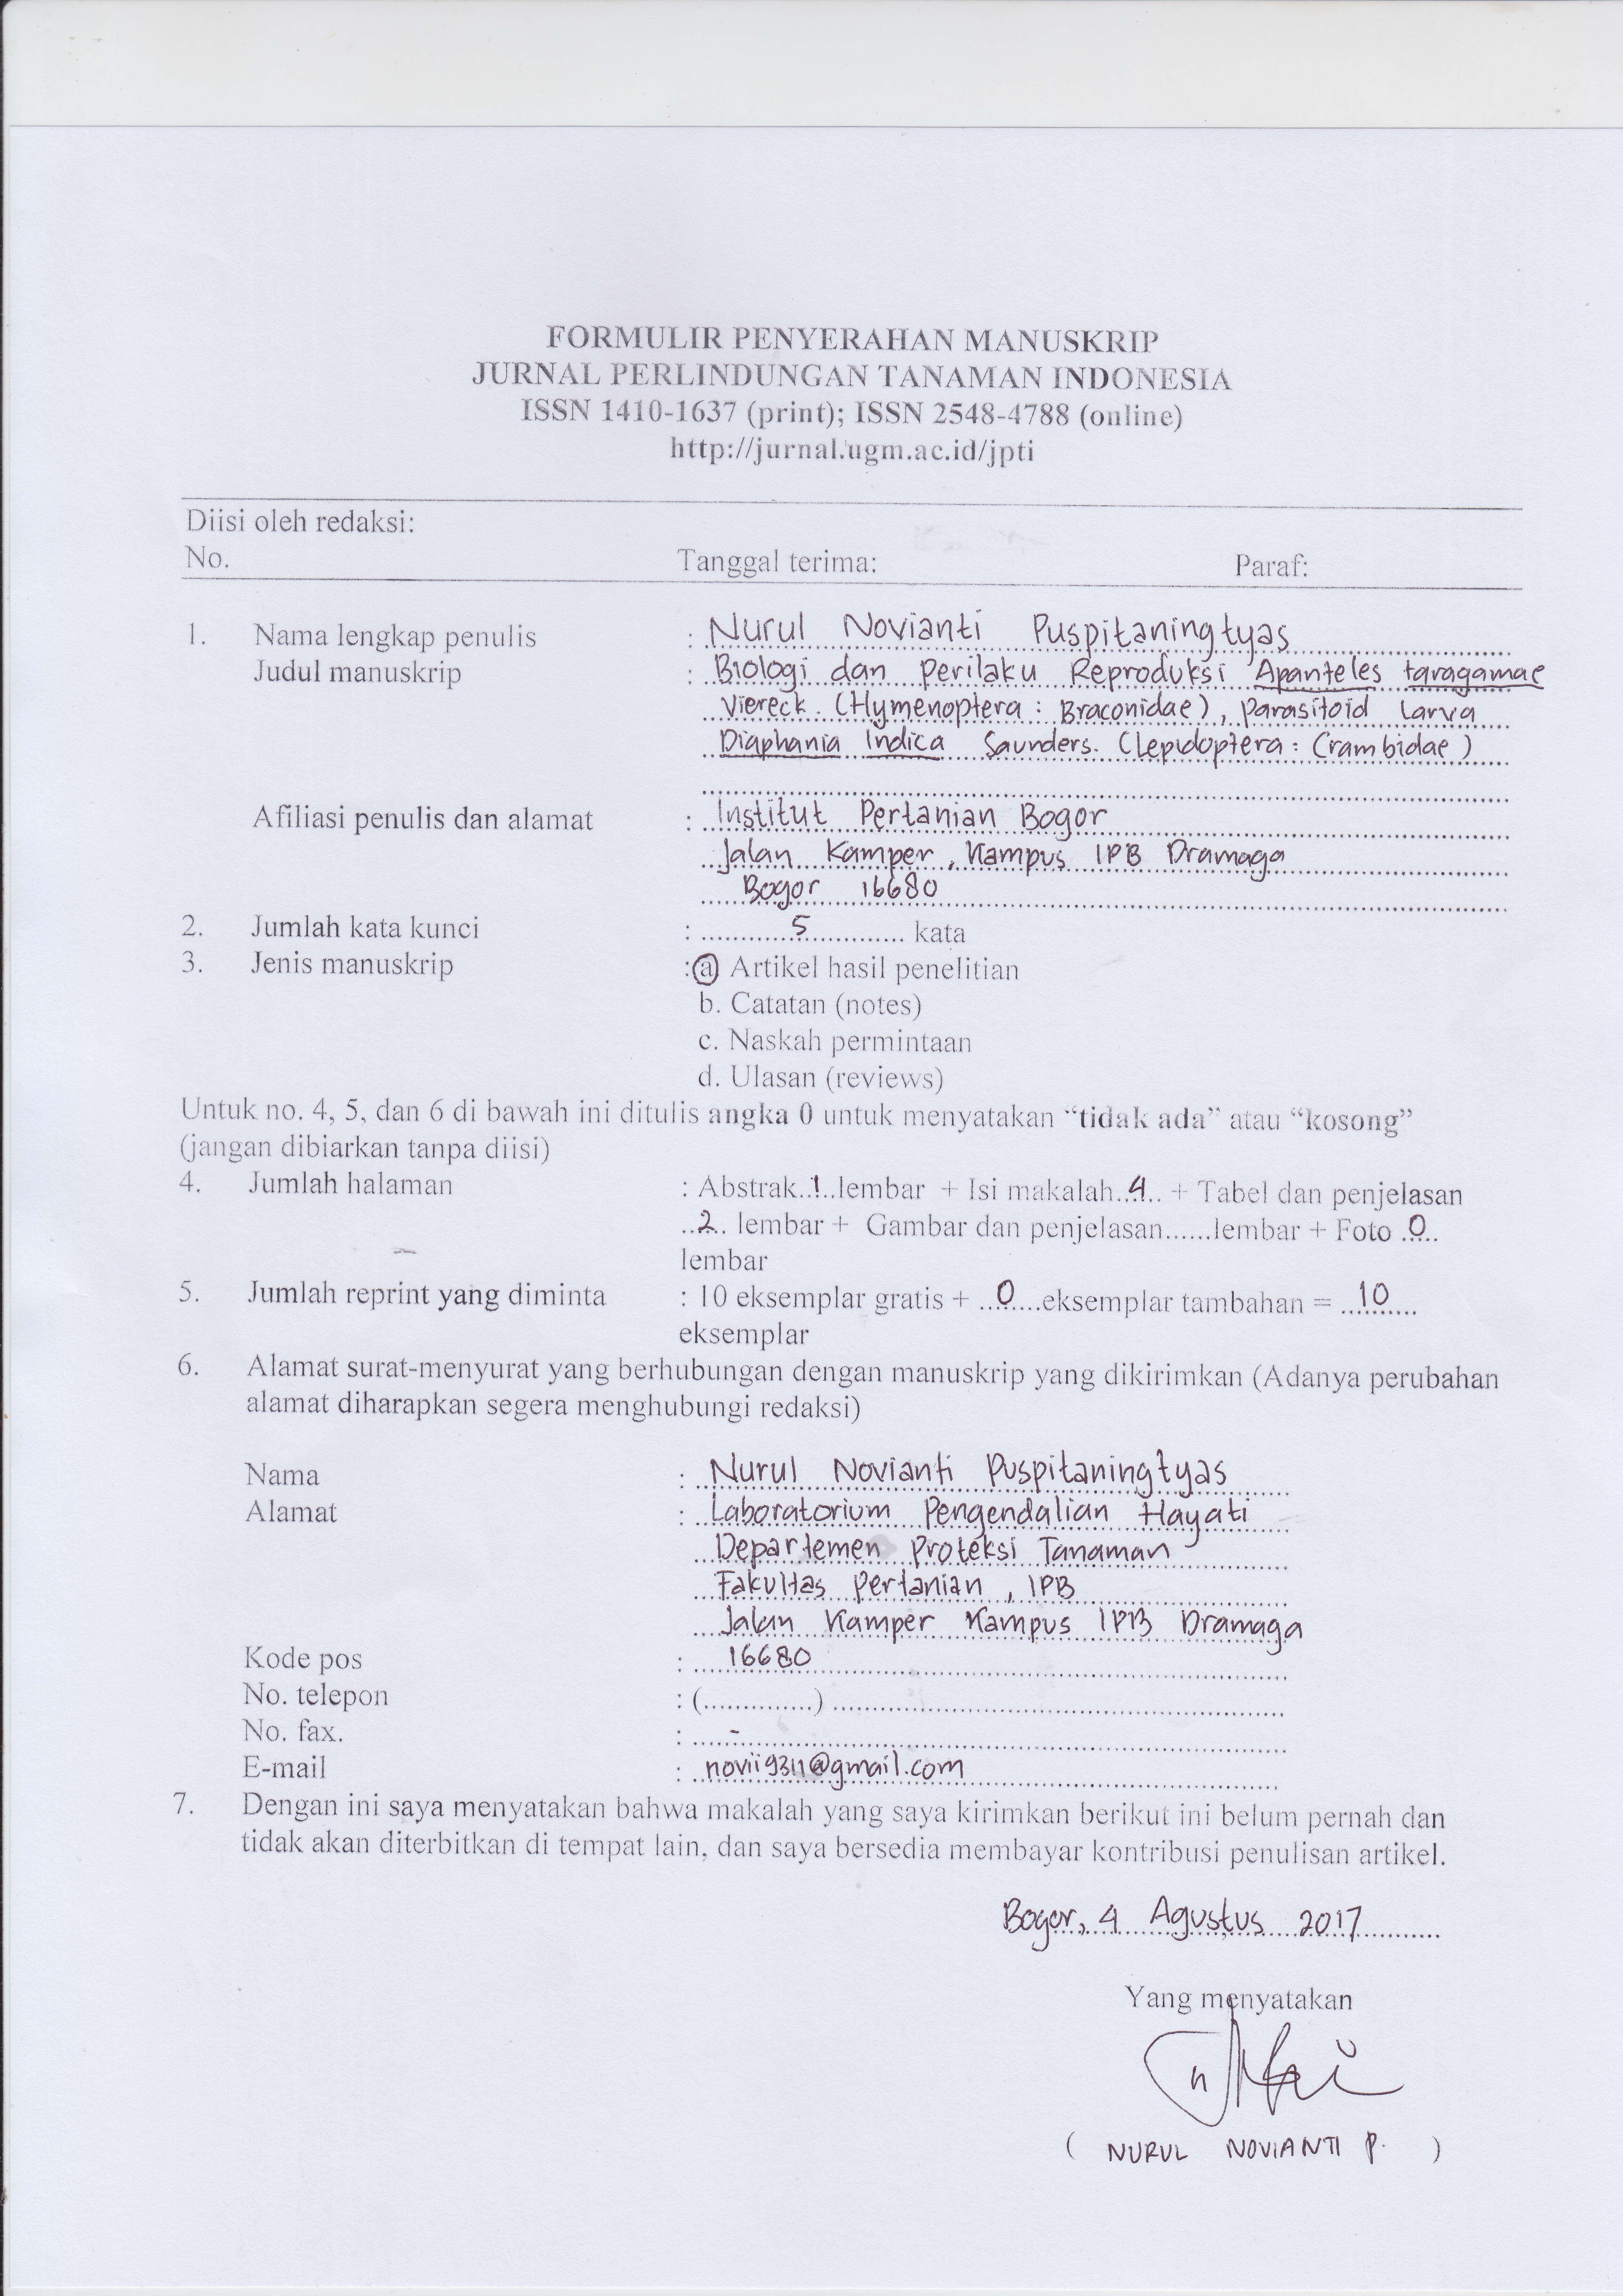 FORMULIR PENYERAHAN MANUSKRIP
JURNAL PERLINDUNGAN TANAMAN INDONESIA
ISSN 1410-1637 (print); ISSN 2548-4788 (online)
http://jurnal.ugm.ac.id/jpti
Diisi oleh redaksi:
No. Tanggal terima: Paraf:
1. Nama lengkap penulis : Nurul Novianti Puspitaningtyas
Judul manuskrip : Biologi dan Perilaku Reproduksi Apanteles taragamae
Viereck. (Hymenoptera: Braconidae), Parasitoid Larva
Diaphania Indica Saunders. (Lepidoptera: Crambidae)
Afiliasi penulis dan alamat : Institut Pertanian Bogor
Jalan Kamper, Kampus IPB Dramaga
Bogor 16680
2. Jumlah kata kunci : ............5............ kata
3. Jenis manuskrip : a Artikel hasil penelitian
b. Catatan (notes)
c. Naskah permintaan
d. Ulasan (reviews)
Untuk no. 4, 5, dan 6 di bawah ini ditulis angka 0 untuk menyatakan “tidak ada” atau “kosong”
(jangan dibiarkan tanpa diisi)
4. Jumlah halaman : Abstrak..1..lembar + Isi makalah..4.. + Tabel dan penjelasan
..2.. lembar + Gambar dan penjelasan......lembar + Foto ..0..
lembar
5. Jumlah reprint yang diminta : 10 eksemplar gratis + ...0....eksemplar tambahan = ...10...
eksemplar
6. Alamat surat-menyurat yang berhubungan dengan manuskrip yang dikirimkan (Adanya perubahan
alamat diharapkan segera menghubungi redaksi)
Nama : Nurul Novianti Puspitaningtyas
Alamat : Laboratorium Pengendalian Hayati
Departemen Proteksi Tanaman
Fakultas Pertanian, IPB
Jalan Kamper Kampus IPB Dramaga
Kode pos : 16680
No. telepon : (..............) ..........................................................
No. fax. : -
E-mail : novii9311@gmail.com
7. Dengan ini saya menyatakan bahwa makalah yang saya kirimkan berikut ini belum pernah dan
tidak akan diterbitkan di tempat lain, dan saya bersedia membayar kontribusi penulisan artikel.
Bogor, 4 Agustus 2017
Yang menyatakan
( NURUL NOVIANTI P. )